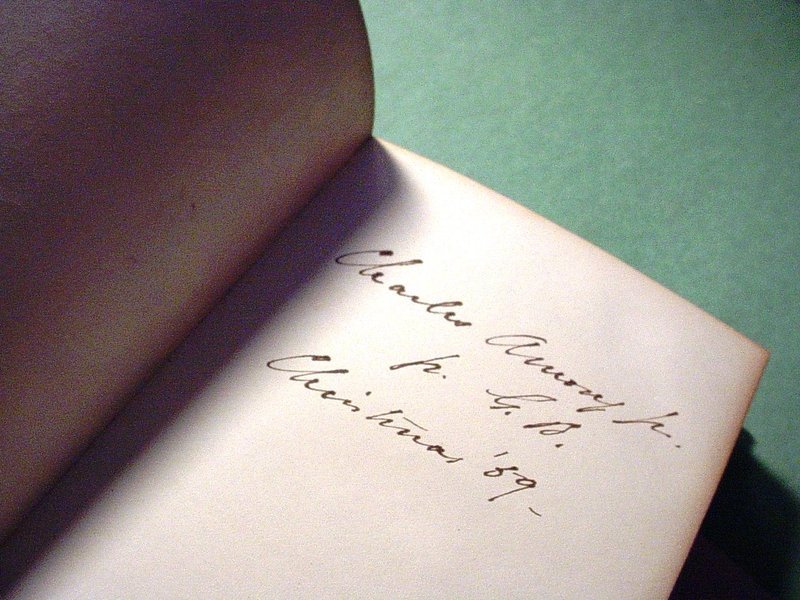 Charles Amory Jr.
fr. G. B.
Christmas '89-